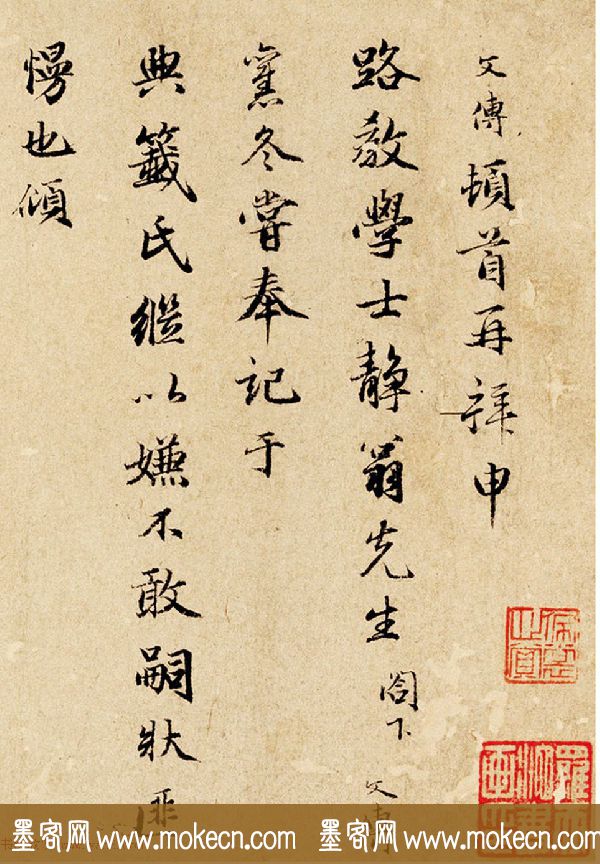 文傳頓首再拜申
路教學士靜翁先生閣下文傳
舊冬嘗奉記于
典籤氏繼以嫌不敢嗣狀非
慢也傾
墨客网 www.mokecn.com 墨客网 www.mokecn.com